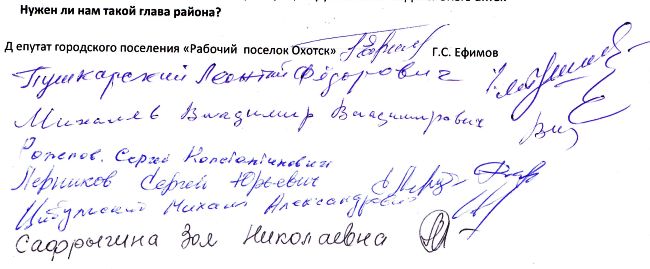 Нужен ли нам такой глава района?
Д епутат городского поселения «Рабочий поселок Охотск» Г.С. Ефимов
Пушкарский Леонтий Фёдорович
Михалев Владимир Владимирович
Сергей Константинович
Сергей Юрьевич
Цибульский Михаил Александрович
Сафрыгина Зоя Николаевна